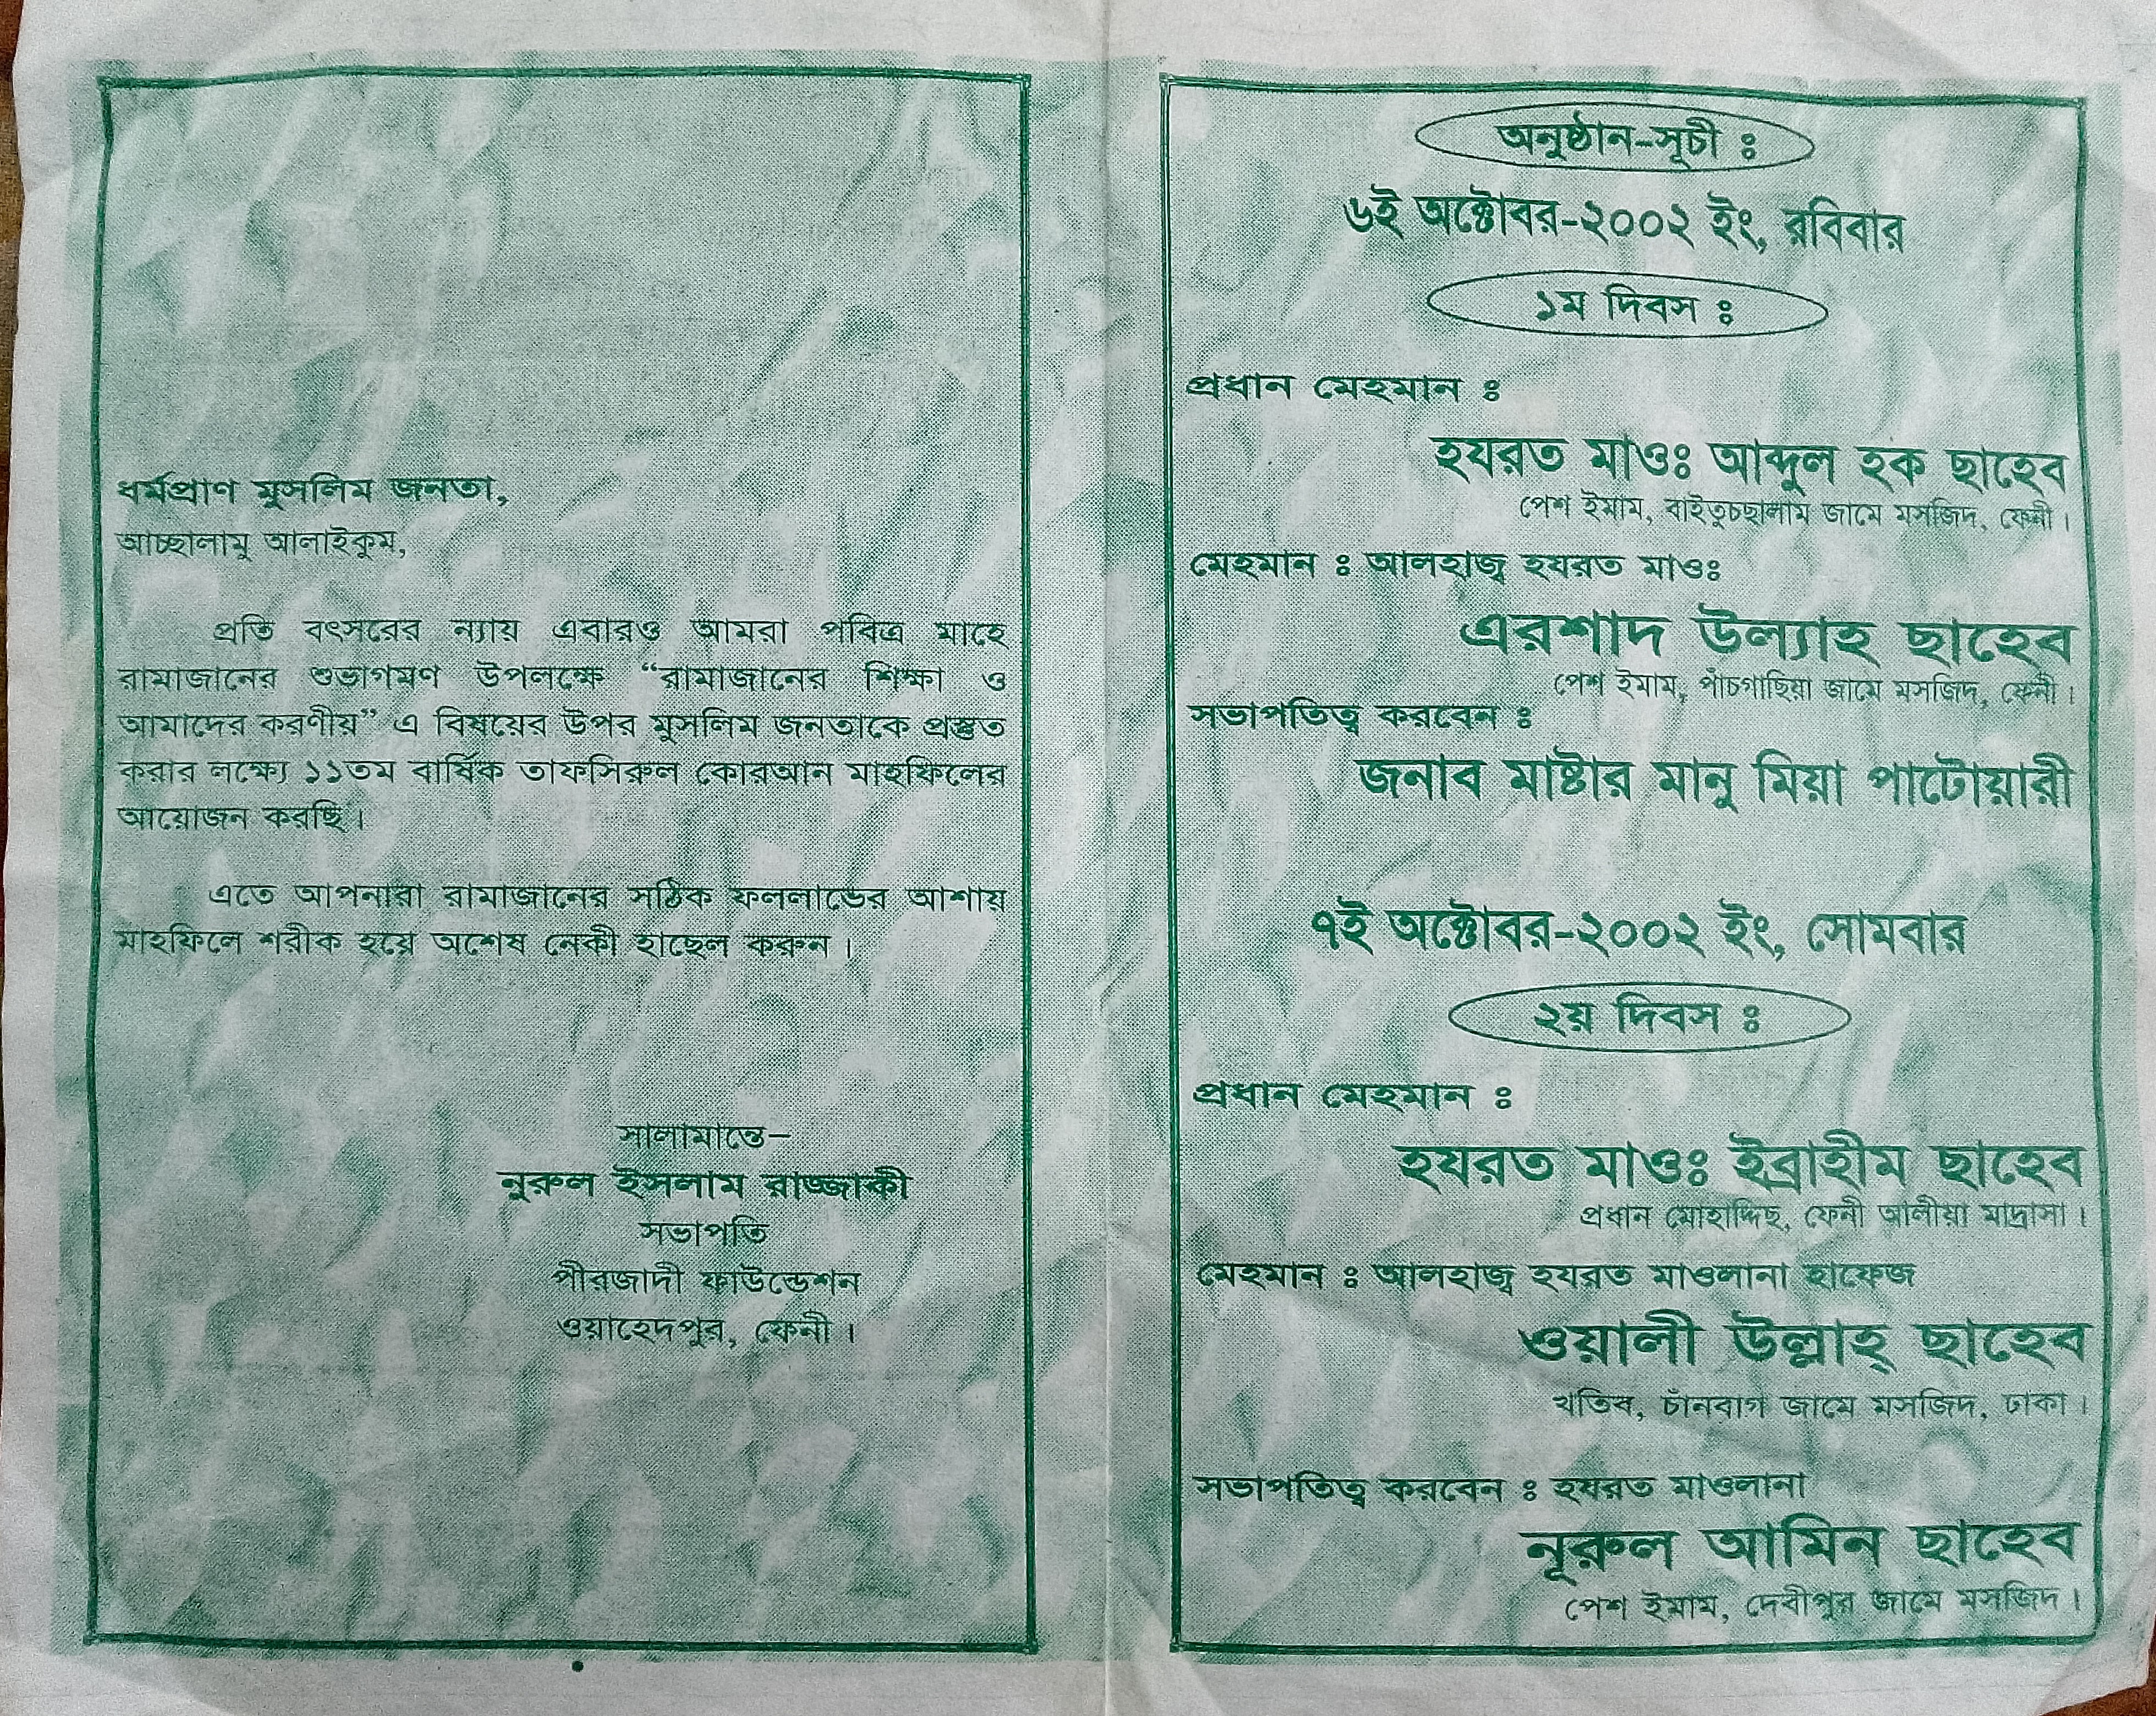 ধর্মপ্রাণ মুসলিম জনতা,
আচ্ছালামু আলাইকুম,
প্রতি বৎসরের ন্যায় এবারও আমরা পবিত্র মাহে
রামাজানের শুভাগমণ উপলক্ষে “রামাজানের শিক্ষা ও
আমাদের করণীয়” এ বিষয়ের উপর মুসলিম জনতাকে প্রস্তুত
করার লক্ষ্যে ১১তম বার্ষিক তাফসিরুল কোরআন মাহফিলের
আয়োজন করছি।
এতে আপনারা রামাজানের সঠিক ফললাভের আশায়
মাহফিলে শরীক হয়ে অশেষ নেকী হাছেল করুন।
সালামান্তে–
নুরুল ইসলাম রাজ্জাকী
সভাপতি
পীরজাদী ফাউন্ডেশন
ওয়াহেদপুর, ফেনী।
অনুষ্ঠান-সূচী ঃ
৬ই অক্টোবর-২০০২ ইং, রবিবার
১ম দিবস ঃ
প্রধান মেহমান ঃ
হযরত মাওঃ আব্দুল হক ছাহেব
পেশ ইমাম, বাইতুচছালাম জামে মসজিদ, ফেনী।
মেহমান ঃ আলহাজ্ব হযরত মাওঃ
এরশাদ উল্যাহ ছাহেব
পেশ ইমাম, পাঁচগাছিয়া জামে মসজিদ, ফেনী।
সভাপতিত্ব করবেন ঃ
জনাব মাষ্টার মানু মিয়া পাটোয়ারী
৭ই অক্টোবর-২০০২ ইং, সোমবার
২য় দিবস ঃ
প্রধান মেহমান ঃ
হযরত মাওঃ ইব্রাহীম ছাহেব
প্রধান মোহাদ্দিছ, ফেনী আলীয়া মাদ্রাসা।
মেহমান ঃ আলহাজ্ব হযরত মাওলানা হাফেজ
ওয়ালী উল্লাহ্ ছাহেব
খতিব, চাঁনবাগ জামে মসজিদ, ঢাকা।
সভাপতিত্ব করবেন ঃ হযরত মাওলানা
নূরুল আমিন ছাহেব
পেশ ইমাম, দেবীপুর জামে মসজিদ।